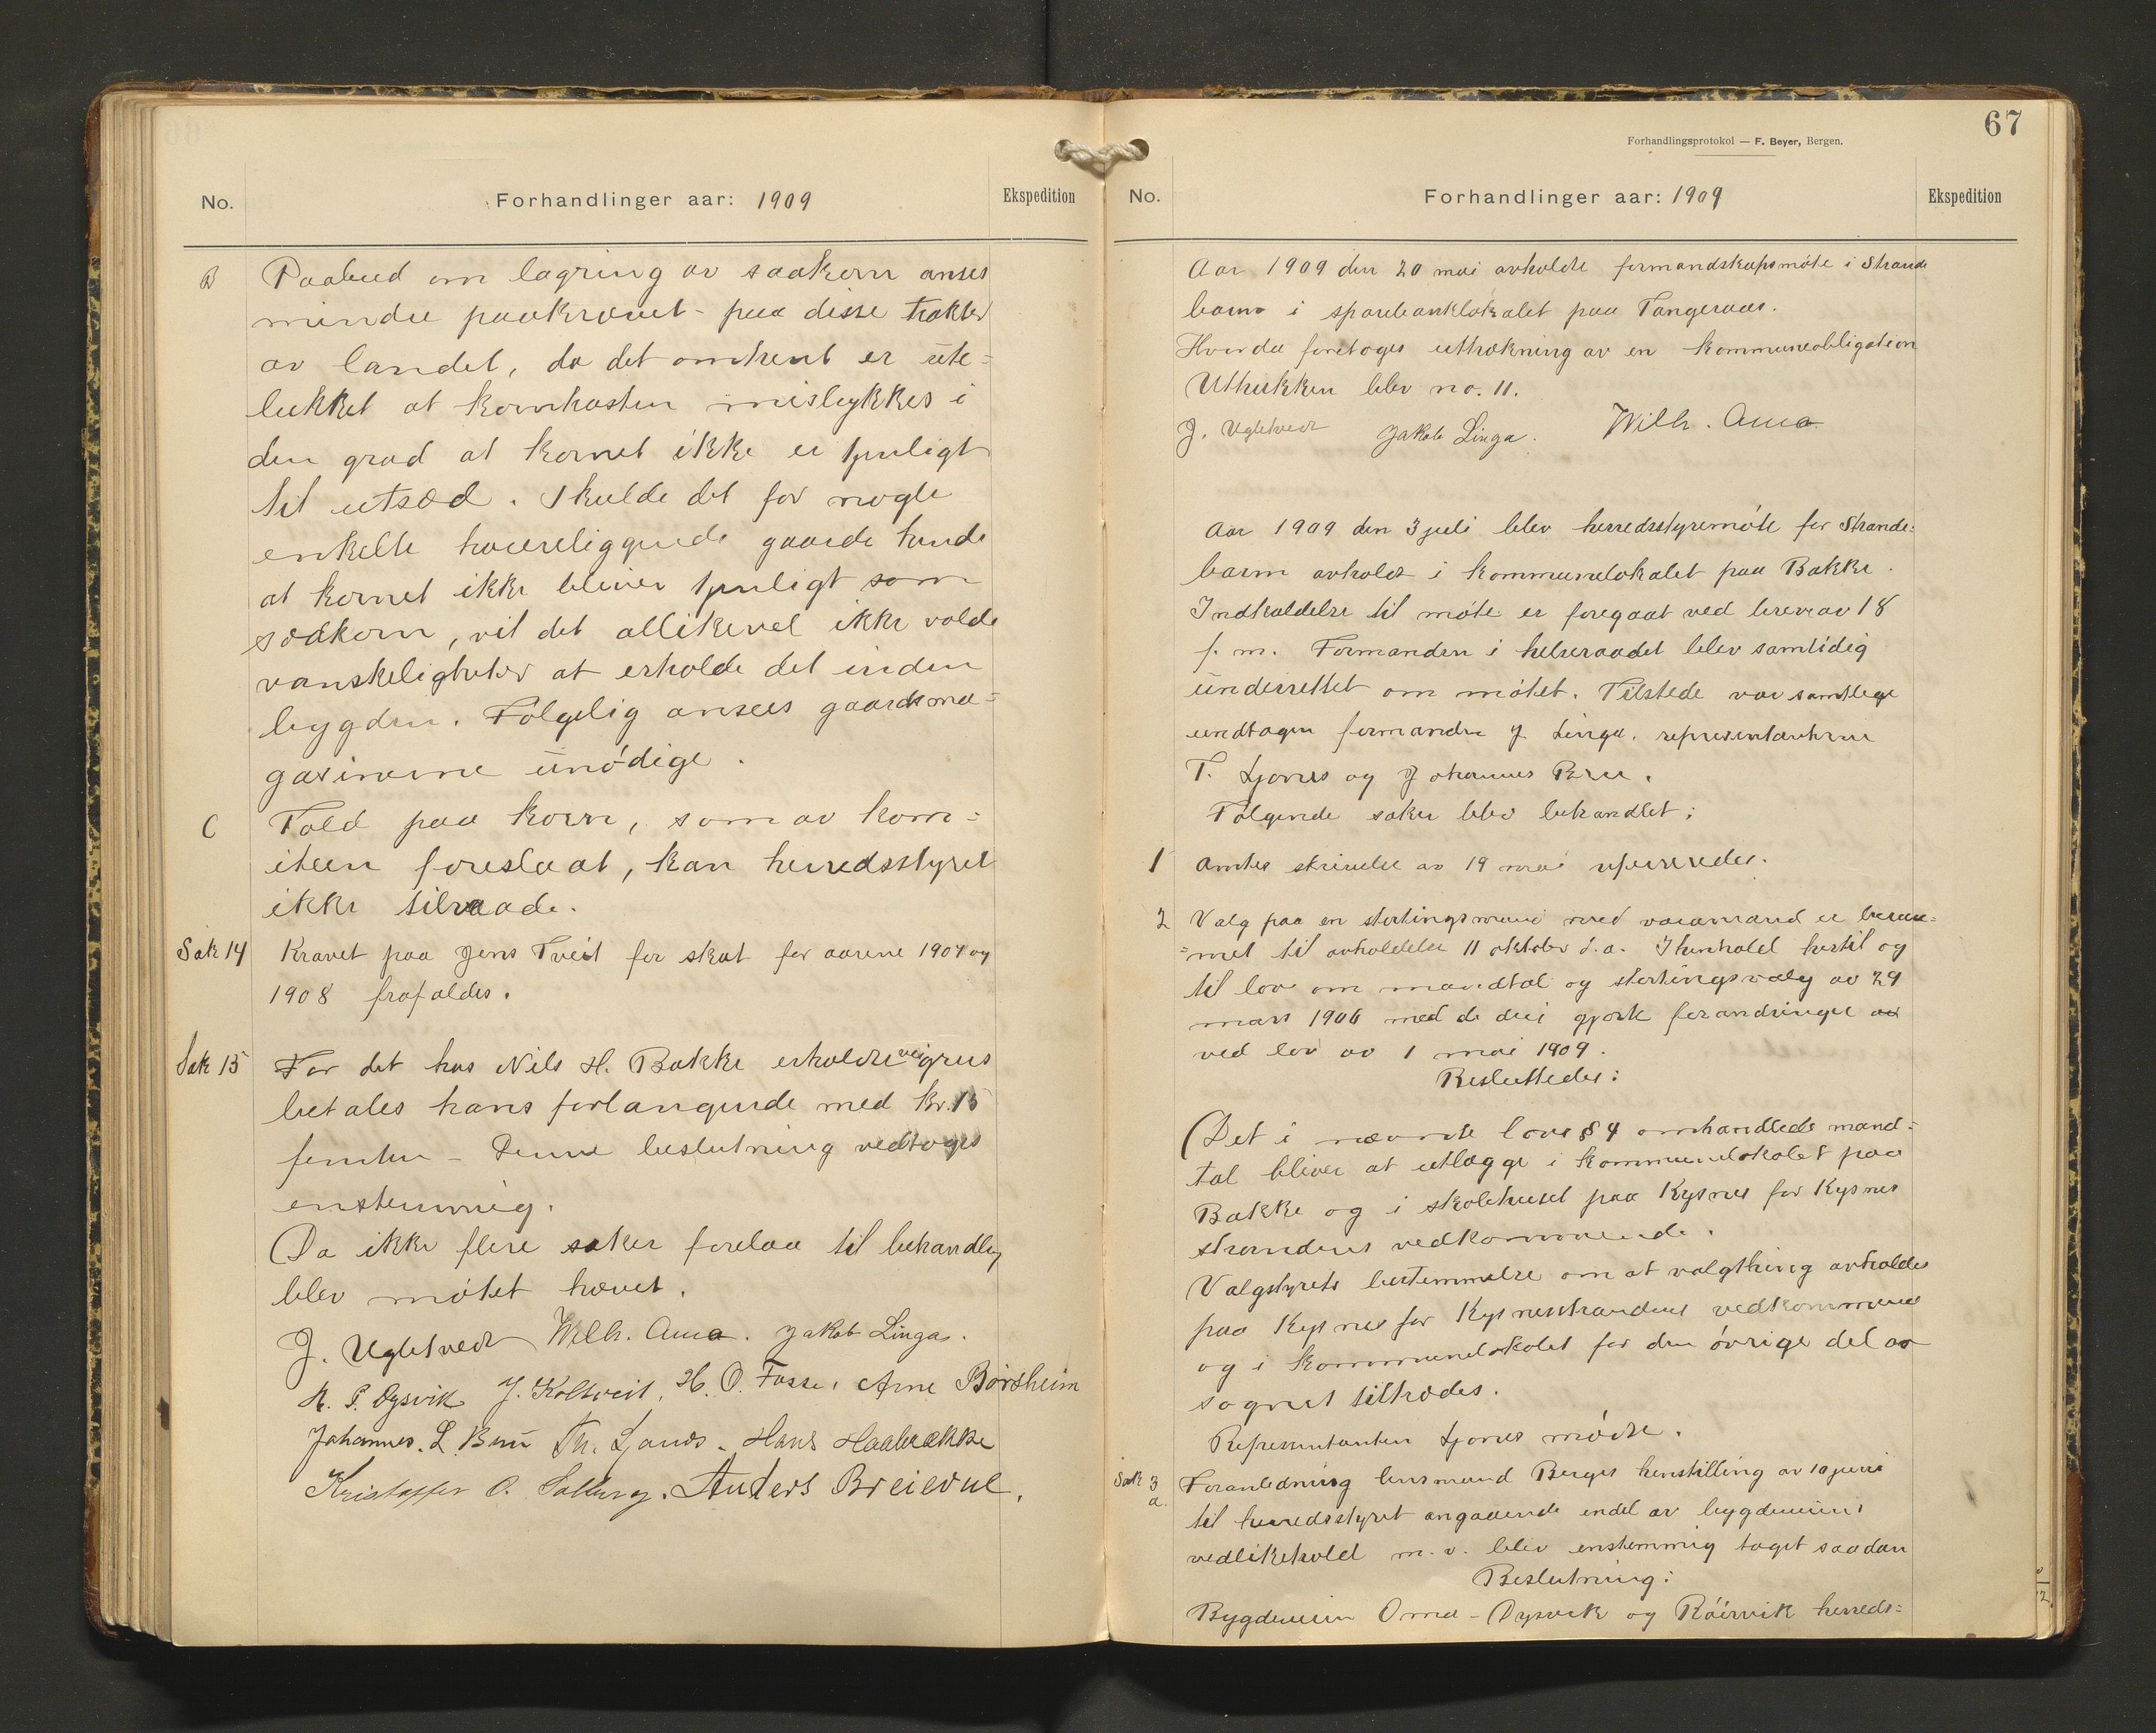 No. Forhandlinger aar: 1909 Ekspedition
B Paabud om lagring av saakorn anses
mindre paakrævet - paa disse trakter
av landet, da det omtrent er ute=
lukket at kornhøsten mislykkes i
den grad at kornet ikke er spiligt
til utsæd. Skulde det for nogle
enkelte høiereliggende gaarde hende
at kornet ikke bliver spiligt som
sædkorn, vil det allikevel ikke volde
vanskeligheter at erholde det inden
bygden. Følgelig ansees gaardsma=
gasinerne unødige.
C Told paa korn, som av kom=
iteen foreslaat, kan herredsstyret
ikke tilraade.
Sak 14 Kravet paa Jens Tveit for skat for aarene 1907 og
1908 frafaldes.
Sak 15 For det hos Nils H. Bakke erholdte veigrus
betales hans forlangende med kr. 15
femten - Denne beslutning vedtoges
enstemmig.
Da ikke flere saker forelaa til behandlig
blev møtet hævet.
J. Ugletvedt Wilh. Ama. Jakob Linga.
N. P. Dysvik J. Koltveit, H. O. Fosse, Arne Børsheim
Johannes. L. Bru Th. Ljones. Hans Haabrække
Kristoffer O. Solberg. Anders Breievne.
67
Forhandlingsprotokol — F. Beyer, Bergen.
No. Forhandlinger aar: 1909 Ekspedition
Aar 1909 den 20 mai avholdt formandskapsmøte i Strande
barm i sparebanklokalet paa Tangeraas.
Hvorda foretoges uttrækning av en kommuneobligation
Uttrukken blev no. 11.
J. Ugletvedt Jakob Linga. Wilh. Ama
Aar 1909 den 3 juli blev herredsstyremøte for Strande=
barm avholdt i kommunelokalet paa Bakke.
Indkaldelse til møte er foregaat ved brev av 18
f. m. Formanden i helseraadet blev samtidig
underrettet om møtet. Tilstede var samtlege
undtagen formanden J. Linga, representanterne
T. Ljones og Johannes Bru.
Følgende saker blev behandlet:
1 Amtets skrivelse av 19 mai refereredes.
2 Valg paa en stortingsmand med varamand er bestem=
=met til avholdelse 11 oktober d.a. I henhold hertil og
til lov om mandtal og stortingsvalg av 29
mars 1906 med de deri gjorte forandringer av
ved lov av 1 mai 1909.
Besluttedes:
Det i nævnte lovs § 4 omhandlede mand=
tal bliver at utlægge i kommunelokalet paa
Bakke og i skolehuset paa Kysnes for Kysnes
strandens vedkommende.
Valgstyrets bestemmelse om at valgthing avholdes
paa Kysnes for Kysnesstrandens vedkommende
og i kommunelokalet for den øvrige del av
sognet tiltrædes.
Representanten Ljones mødte.
Sak 3 a. Foranledning lensmand Berges henstilling av 10 juni
til herredsstyret angaaende endel av bygdeveiens
vedlikehold m.v. blev enstemmig taget saadan
Beslutning:
Bygdeveien Oma - Dysvik og Røirvik herreds=